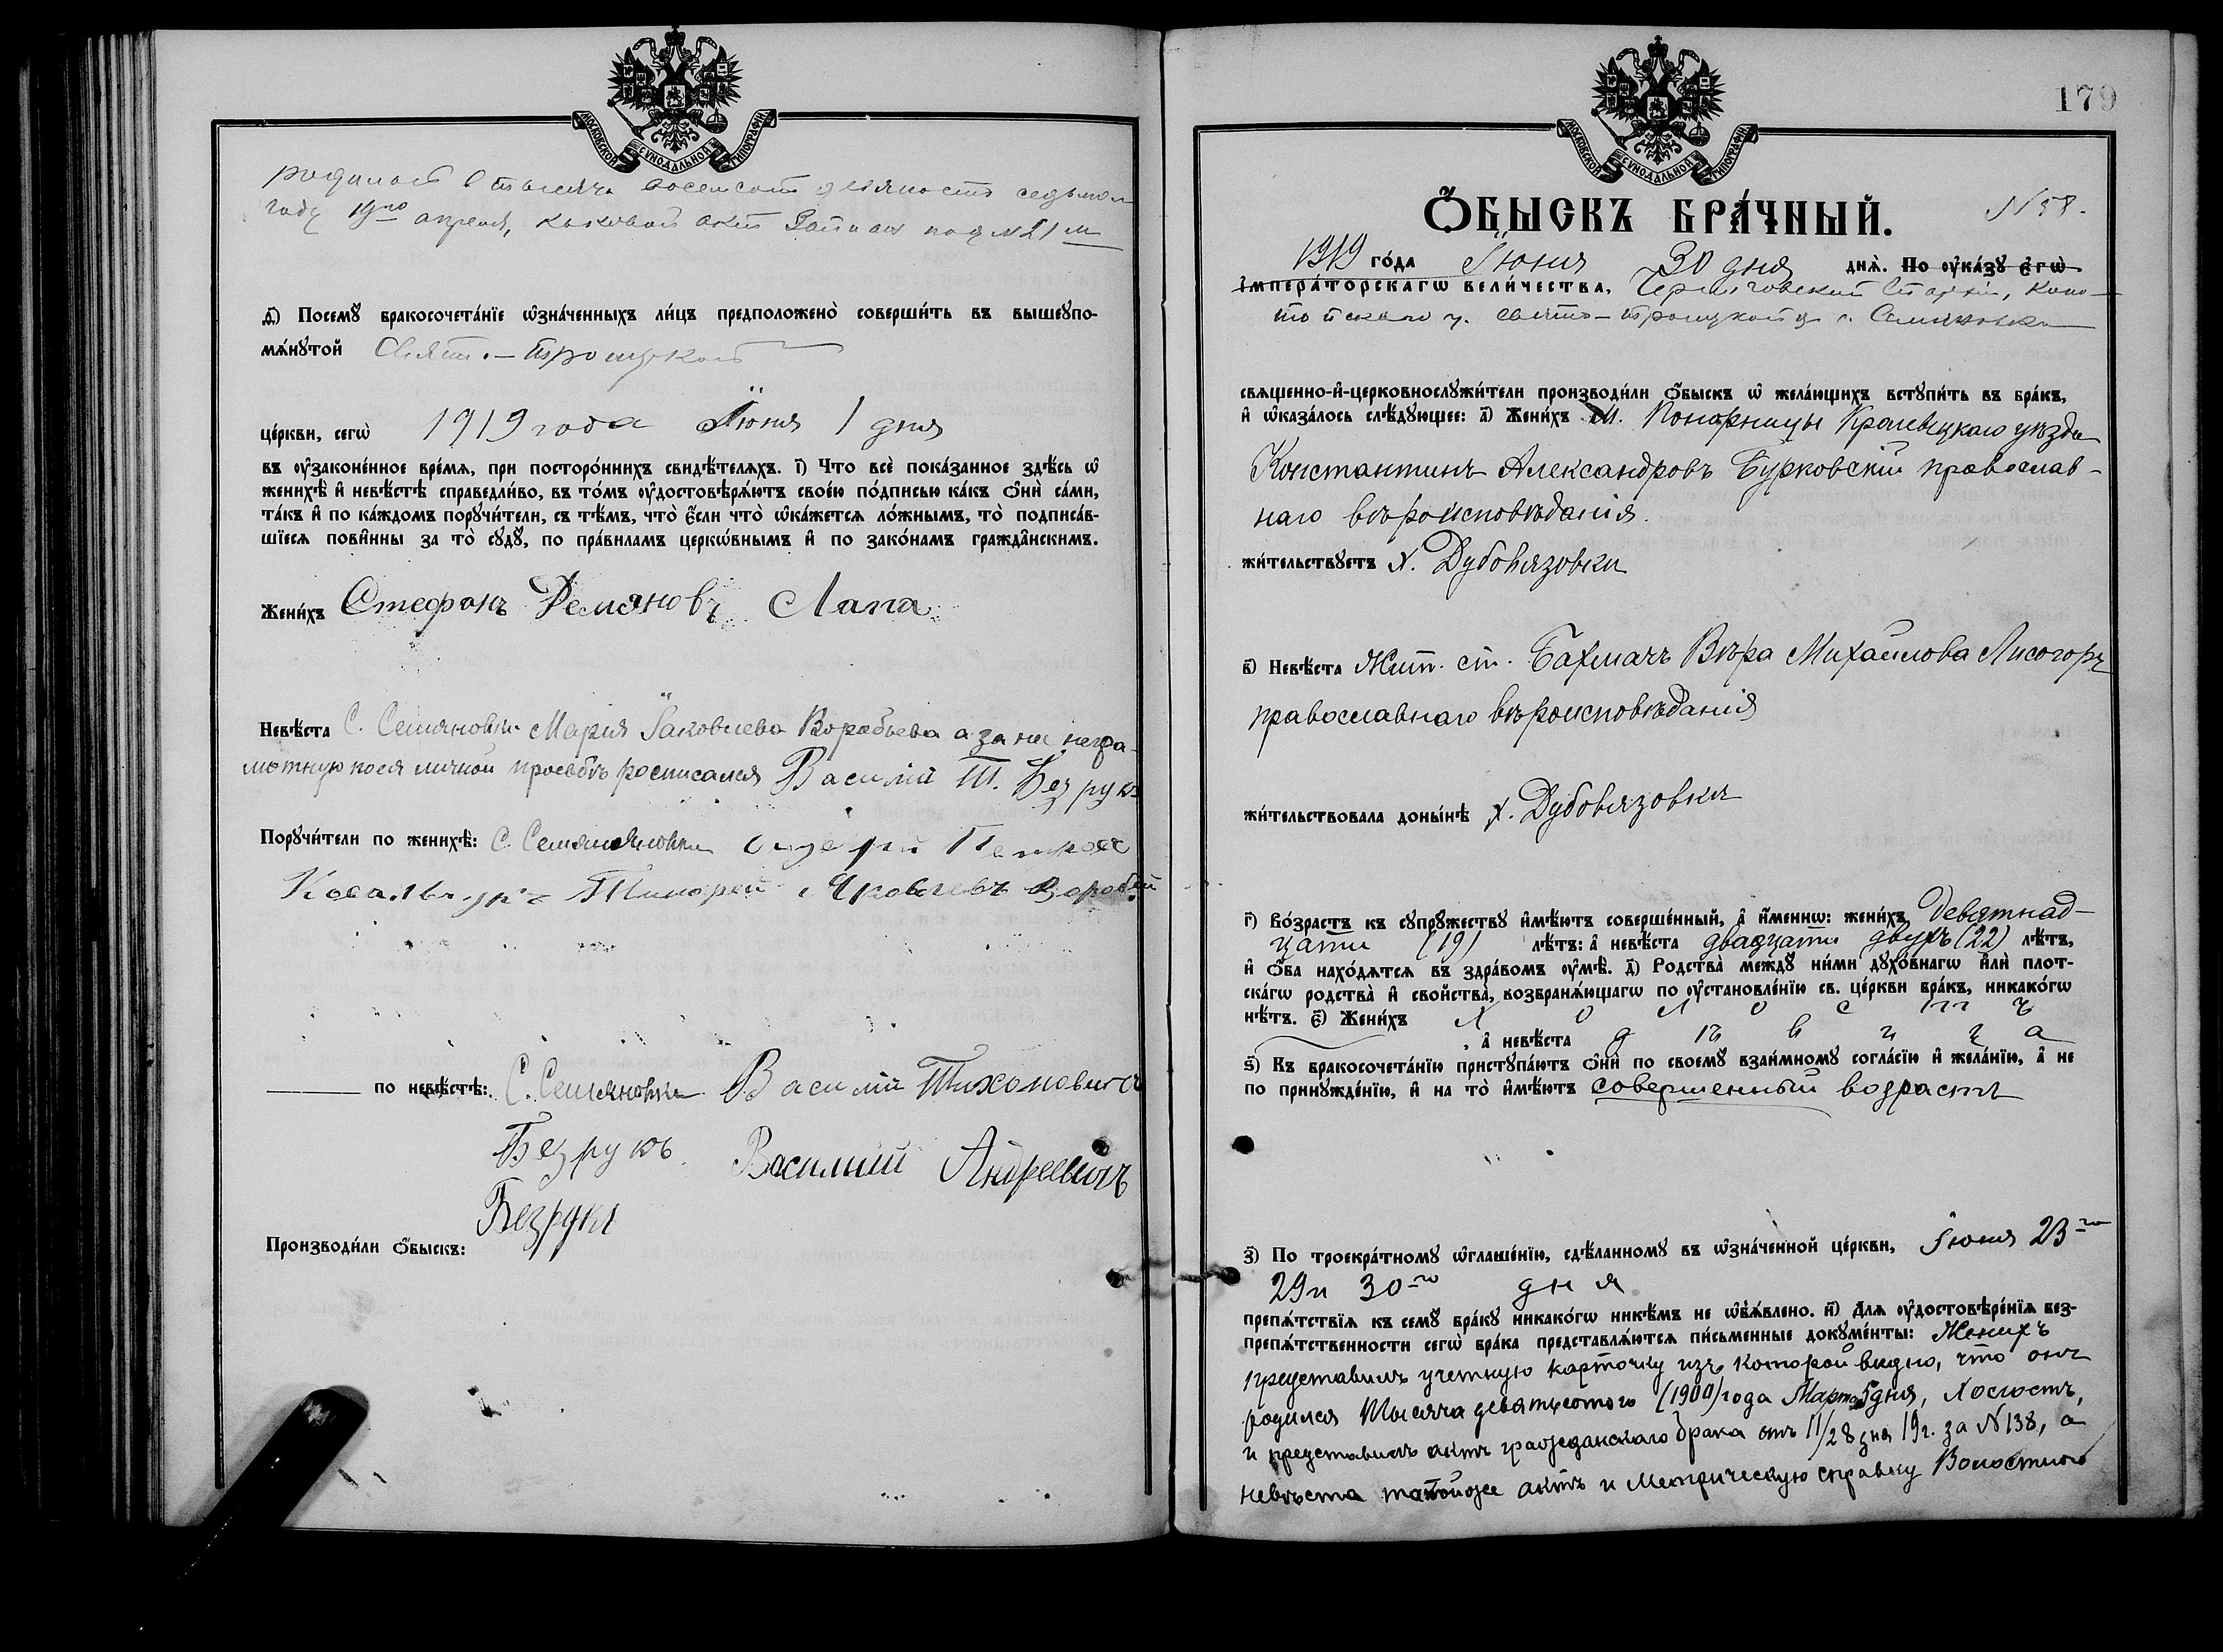 МОСКОВСКОЙ СѴНОДАЛЬНОЙ ТИПОГРАФІИ
родилась в тысяча восемсот девяносто седьмом
году 19го апреля, каковой актъ записан под №21 м
Ѳ҃) Посемꙋ бракосочета́нїе ѡ҆зна́ченныхъ ли́цъ предположено̀ соверши́ть въ вышеꙋпо-
мѧ́нꙋтой Свято-Троицкой
це́ркви, сегѡ̀ 1919 года Іюня 1 дня
въ ᲂу҆законе́нное вре́мѧ, при посторо́ннихъ свидѣ́телѧхъ. І҃) Что̀ всѐ пока́занное здѣ́сь ѡ҆
женихѣ̀ и҆ невѣ́стѣ справедли́во, въ то́мъ ᲂу҆достовѣрѧ́ютъ свое́ю по́дписью ка́къ ѻ҆нѝ са́ми,
та́къ и҆ по ка́ждомъ порꙋчи́тели, съ тѣ́мъ, что̀ є҆́сли что̀ ѡ҆ка́жетсѧ ло́жнымъ, то̀ подписа́в-
шїесѧ пови́нны за то̀ сꙋдꙋ̀, по пра́виламъ церкѡ́внымъ и҆ по зако́намъ гражда̑нскимъ.
Жени́хъ Стефанъ Демяновъ Лапа
Невѣ́ста С. Семяновки Марія Яковлева Воробьева а за нее негра-
мотную по ея личной просьбѣ росписался Василій Т. Безрукъ
Порꙋчи́тели по женихѣ̀: С. Семяновки Петров
Ковальчукъ Тимофей Яковлевъ Воробей
по невѣ́стѣ: С. Семяновки Василій Тихоновичъ
Безрукъ Василий Андреевичъ
Безрукъ
Производи́ли ѻ҆́быскъ:
179
МОСКОВСКОЙ СѴНОДАЛЬНОЙ ТИПОГРАФІИ
Ѻ҆́БЫСКЪ БРА́ЧНЫЙ. №58.
1919 го́да Іюня 30 дня днѧ̀. По ᲂу҆ка́зꙋ є҆гѡ̀
и҆мпера́торскагѡ вели́чества, Черниговской Епархіи, Коно-
топскаго у. Свято-Троицкой ц. с. Семяновки
свѧще́нно-и҆-церковнослꙋжи́тели производи́ли ѻ҆́быскъ ѡ҆ жела́ющихъ встꙋпи́ть въ бра́къ,
и҆ ѡ҆каза́лось слѣ́дꙋющее: а҃) Жени́хъ М. Понорницы Кролевецкаго уѣзда
Константинъ Александровъ Бурковскій православ-
наго вѣроисповѣданія.
жи́тельствꙋетъ х. Дубовязовки
в҃) Невѣ́ста Жит. ст. Бахмачъ Вѣра Михайлова Лисогоръ
православнаго вѣроисповѣданія
жи́тельствовала доны́нѣ х. Дубовязовки
г҃) Во́зрастъ къ сꙋпрꙋ́жествꙋ и҆мѣ́ютъ соверше́нный, а҆ и҆́меннѡ: жени́хъ девятнад-
цати (19) лѣ́тъ: а҆ невѣ́ста двадцати двухъ (22) лѣ́тъ,
и҆ ѻ҆́ба нахо́дѧтсѧ въ здра́вомъ ᲂу҆мѣ̀. д҃) Родства̀ междꙋ̀ ни́ми дꙋхо́внагѡ и҆лѝ плот-
ска́гѡ родства̀ и҆ свойства̀, возбранѧ́ющагѡ по ᲂу҆становле́нїю св. це́ркви бра́къ, никако́гѡ
нѣ́тъ. є҃) Жени́хъ холостъ
, а҆ невѣ́ста дѣвица
ѕ҃) Къ бракосочета́нїю пристꙋпа́ютъ ѻ҆нѝ по своемꙋ̀ взаи́мномꙋ согла́сїю и҆ жела́нїю, а҆ не
по принꙋжде́нїю, и҆ на то̀ и҆мѣ́ютъ совершенный возрастъ
з҃) По троекра́тномꙋ ѡ҆глаше́нїю, сдѣ́ланномꙋ въ ѡ҆зна́ченной це́ркви, Іюня 23го
29 и 30го дня
препѧ́тствїѧ къ семꙋ̀ бра́кꙋ никако́гѡ никѣ́мъ не ѡ҆б̾ѧ́влено. и҃) Длѧ ᲂу҆достовѣре́нїѧ без-
препѧ́тственности сегѡ̀ бра́ка представлѧ́ютсѧ пи́сьменные докꙋме́нты: Женихъ
представилъ учетную карточку изъ которой видно, что онъ
родился тысяча девятисотого (1900) года Марта 5 дня, холостъ,
и представилъ актъ гражданскаго брака отъ 11/28 дня 19 г. за №138, а
невѣста такой же актъ и метрическую справку Волостного